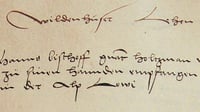 Wildenhuser Lehen
hanns bischoff genant holtzman
zu sinen hannden empfangen
in der Alp Lewi